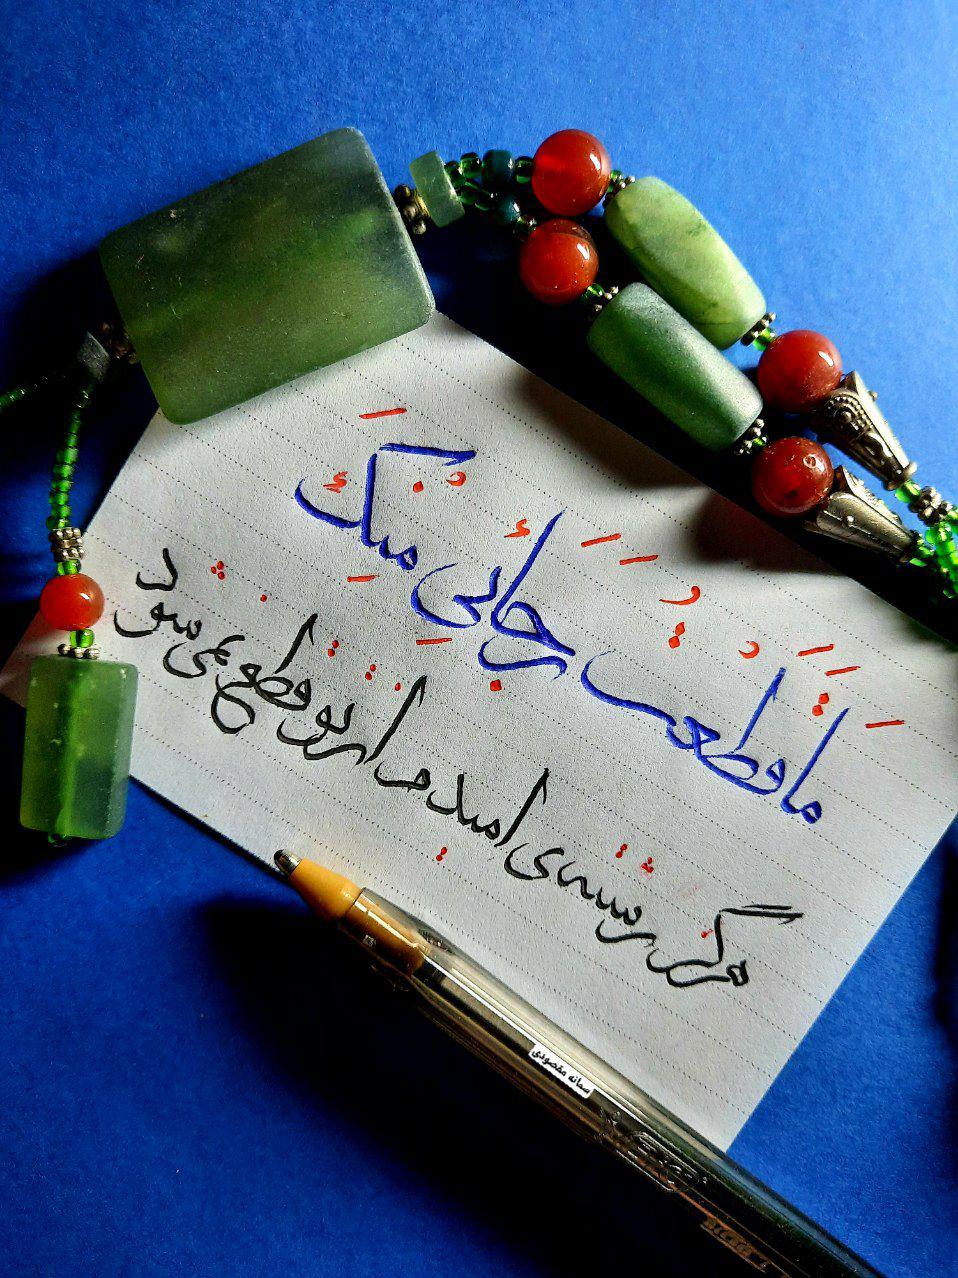 ما قَطَعْتُ رَجَائِي مِنْكَ
هرگز رشته‌ی امید مرا از تو قطع نمی‌شود
سمانه مقصودی